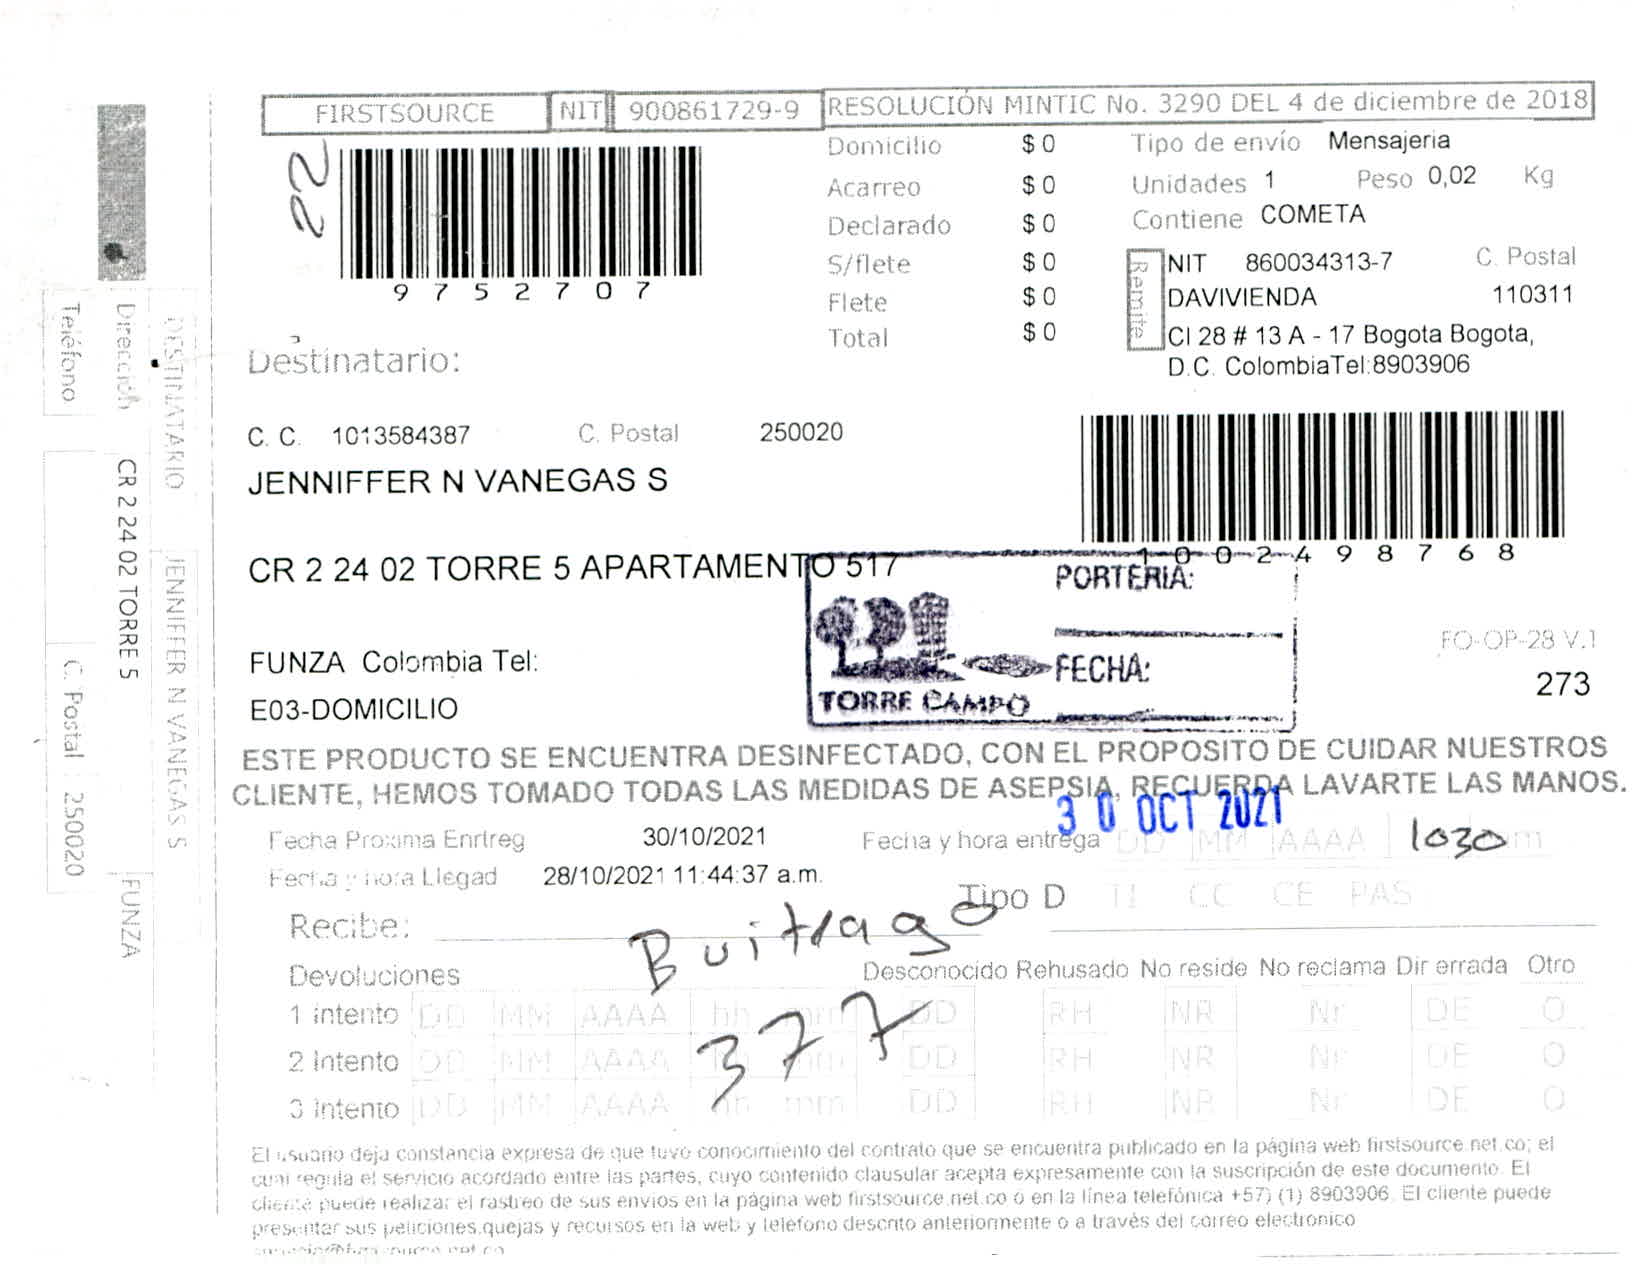 FIRSTSOURCE NIT 900861729-9 RESOLUCIÓN MINTIC No. 3290 DEL 4 de diciembre de 2018
22
9752707
Domicilio $ 0
Acarreo $ 0
Declarado $ 0
S/flete $ 0
Flete $ 0
Total $ 0
Tipo de envío Mensajeria
Unidades 1 Peso 0,02 Kg
Contiene COMETA
Remite
NIT 860034313-7 C. Postal
DAVIVIENDA 110311
Cl 28 # 13 A - 17 Bogota Bogota,
D.C. ColombiaTel:8903906
Destinatario:
C. C. 1013584387 C. Postal 250020
JENNIFFER N VANEGAS S
1002498768
CR 2 24 02 TORRE 5 APARTAMENTO 517
PORTERIA:
FECHA:
TORRE CAMPO
FUNZA Colombia Tel:
E03-DOMICILIO
FO-OP-28 V.1
273
ESTE PRODUCTO SE ENCUENTRA DESINFECTADO, CON EL PROPOSITO DE CUIDAR NUESTROS
CLIENTE, HEMOS TOMADO TODAS LAS MEDIDAS DE ASEPSIA, RECUERDA LAVARTE LAS MANOS.
30 OCT 2021
Fecha Proxima Enrtreg 30/10/2021 Fecha y hora entrega DD MM AAAA 1030 mm
Fecha y hora Llegad 28/10/2021 11:44:37 a.m.
Tipo D TI CC CE PAS
Recibe: Buitrago
377
Devoluciones Desconocido Rehusado No reside No reclama Dir errada Otro
1 intento DD MM AAAA hh mm DD RH NR Nr DE O
2 Intento DD MM AAAA mm DD RH NR Nr DE O
3 Intento DD MM AAAA hh mm DD RH NR Nr DE O
El usuario deja constancia expresa de que tuvo conocimiento del contrato que se encuentra publicado en la página web firstsource.net.co; el
cual regula el servicio acordado entre las partes, cuyo contenido clausular acepta expresamente con la suscripción de este documento. El
cliente puede realizar el rastreo de sus envios en la página web firstsource.net.co o en la línea telefónica +57) (1) 8903906. El cliente puede
presentar sus peticiones,quejas y recursos en la web y telefono descrito anteriormente o a través del correo electronico
DESTINATARIO JENNIFFER N VANEGAS S
Dirección CR 2 24 02 TORRE 5 FUNZA
Teléfono C. Postal 250020